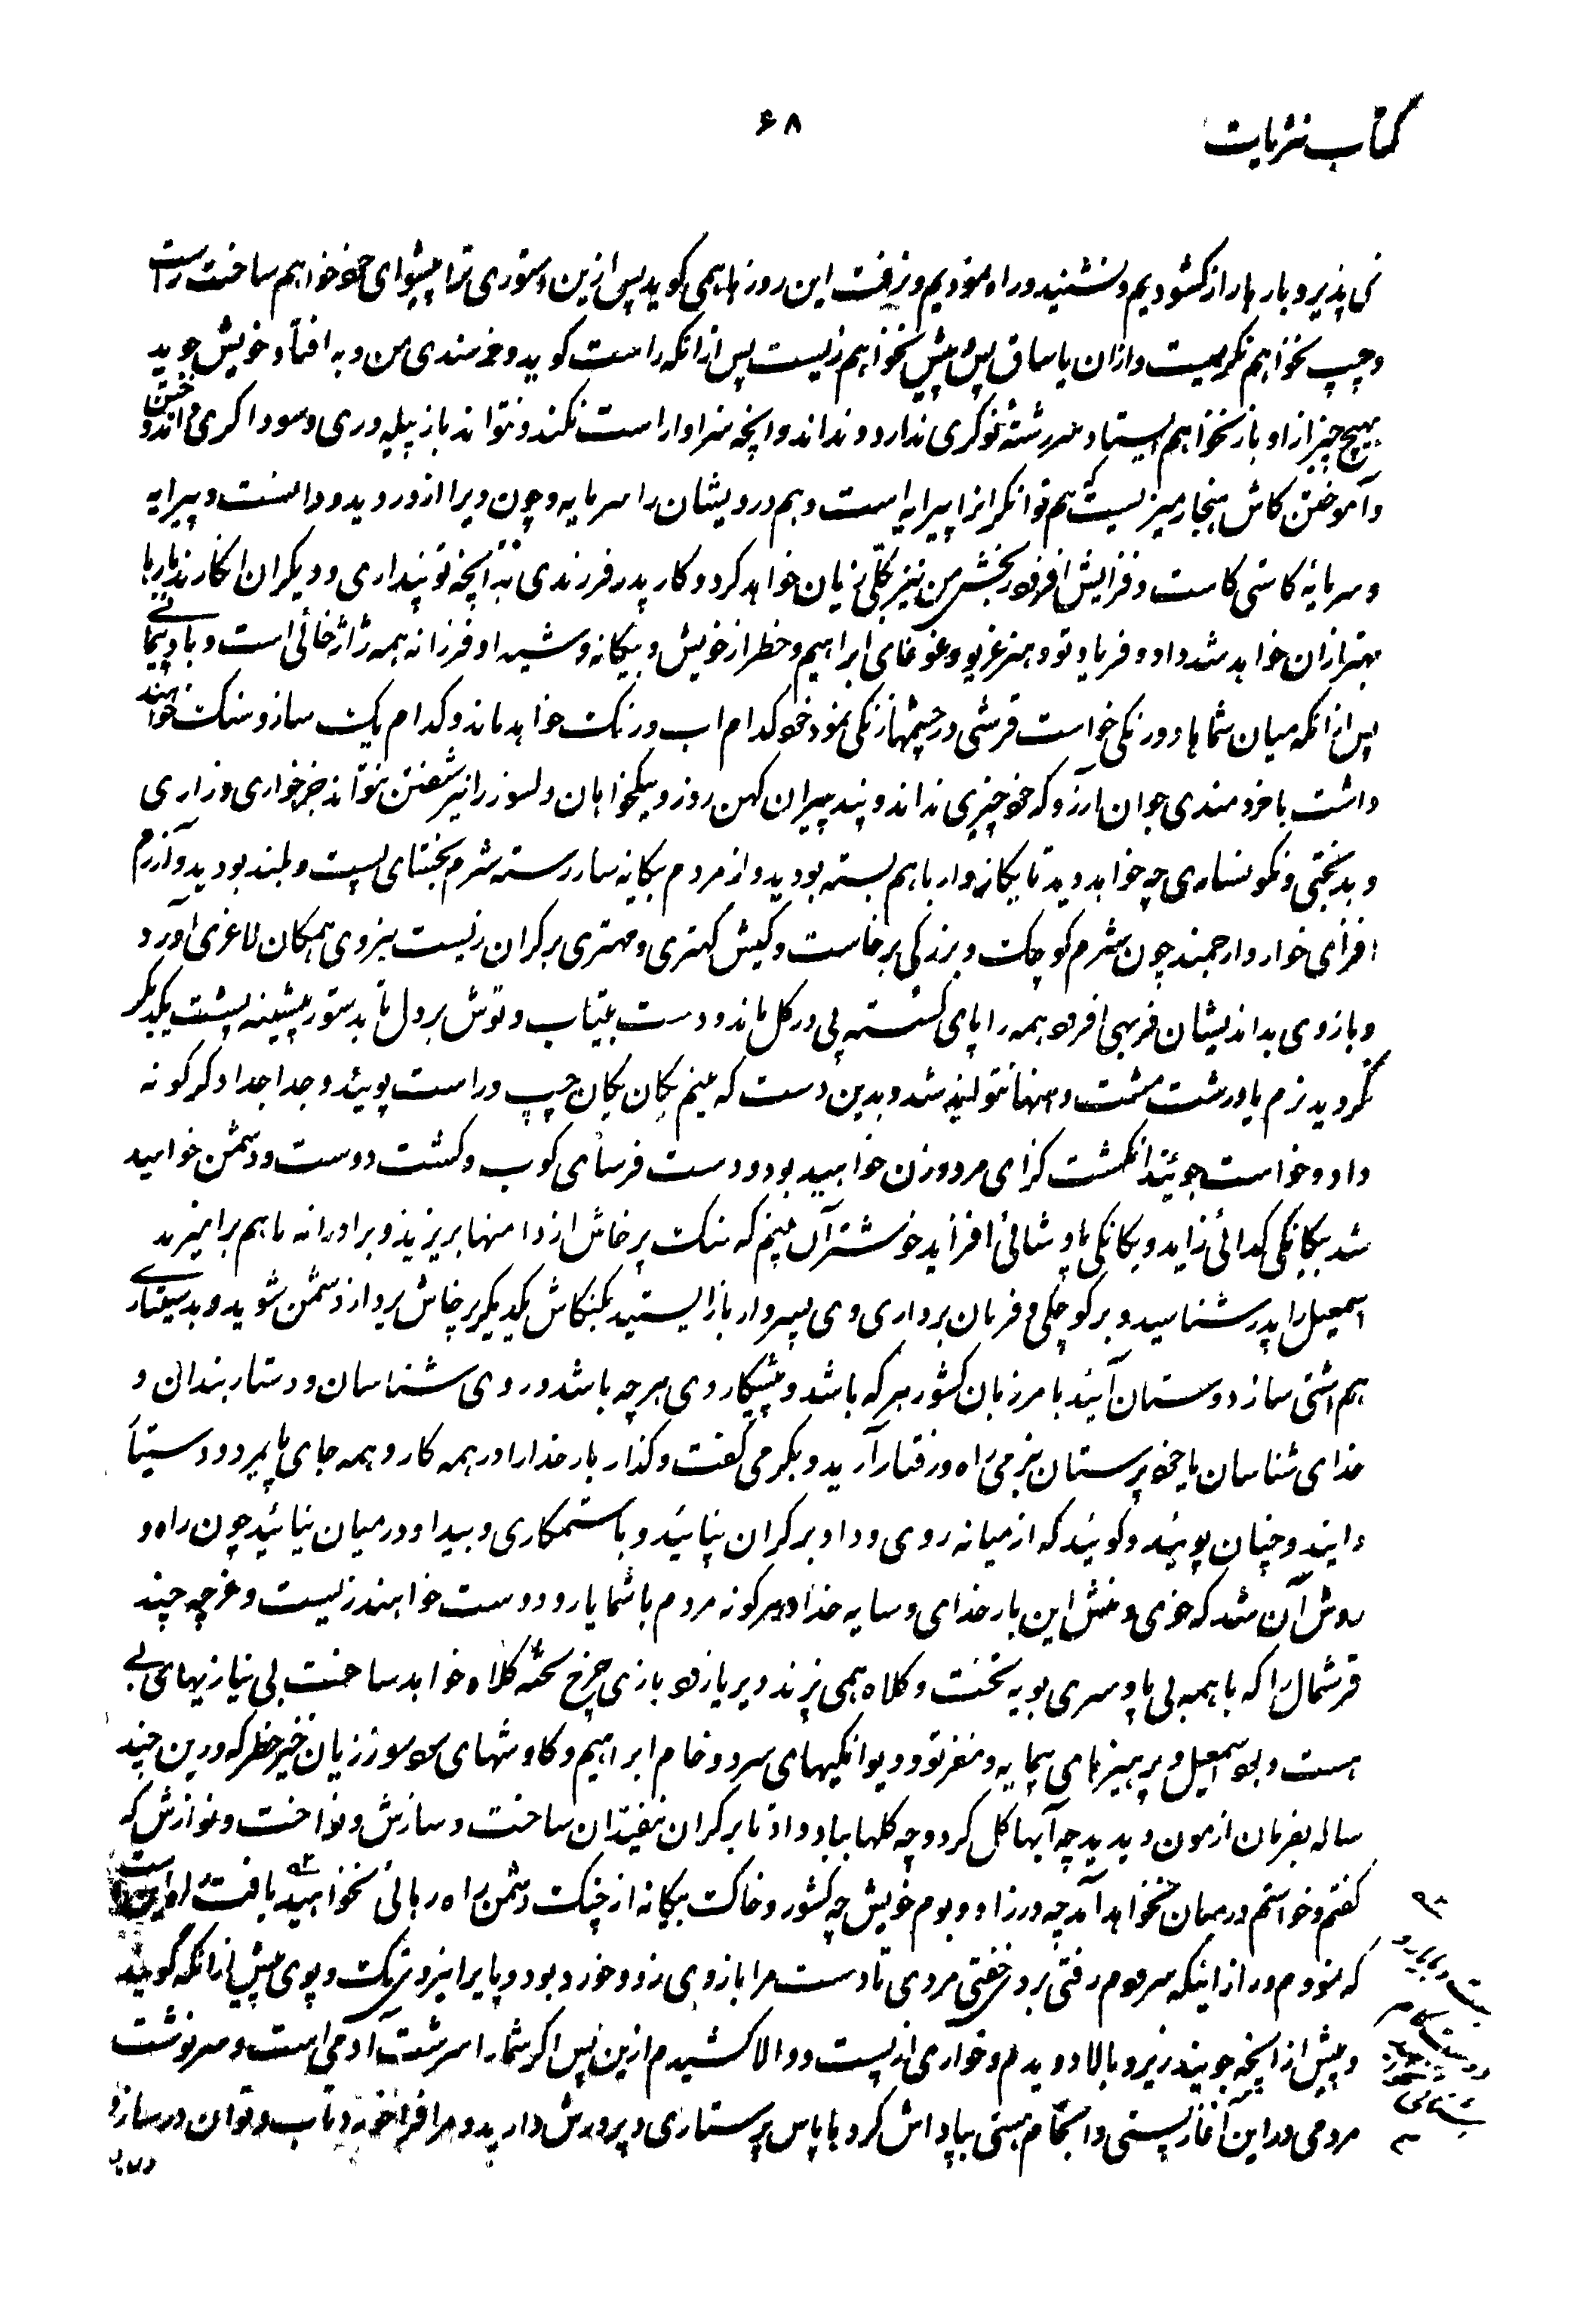 کتاب نثریات
۶۸
نمی پذیرد بارها راز کشودیم و نشنید و راه نمودیم و نرفت این روزها همی کوید پس ازین دستوری ترا پیشوای خود خواهم ساخت راست
و چپ نخواهم نکریست و ازان یاساق پس و پیش نخواهم زیست پس ازانکه راست کوید و خرسندی من و به افتاد خویش جوید
بهیچ چیز از او باز نخواهم ایستاد سررشته نوکری ندارد و نداند و انچه سزاوار است نکند و نتواند باز پیله وری و سوداکری و اندوختن
و آموختن کاش هنجار میزیست که هم توانکرانرا پیرایه است و هم درویشان را سرمایه و چون ویرا از در دید و دانست و پیرایه
و سرمایه کاستی کاست و فزایش افزود بخشش من نیز بکلی بزیان خواهد کرد و کار پدر فرزندی نه آنچه تو پنداری و دیکران انکارند بارها
بهتر ازان خواهد شد داد و فریاد تو و هنر غریو و غوغای ابراهیم و خطر از خویش و بیکانه و شید او فرزانه همه ژاژخائی است و بادپیمائی
پس از انکه میان شماها دورنکی خواست قرشی در چشمها زنکی نمود خود کدام اب و رنک خواهد ماند و کدام یک ساز و سنک خواهند
داشت با خردمندی جوان آرزو که خود چیزی نداند و پند پیران کهن روز و نیکخواهان دلسوز را نیز شفتن نتواند جز خواری و زاری
و بدبختی و نکونساری چه خواهد دید تا یکانه وار با هم بسته بودید و از مردم بیکانه سار رسته شرم بخشای پست و بلند بودید و آزرم
افزای خوار و ارجمند چون شرم کوچک و بزرکی برخاست و کیش کهتری و مهتری برکران زیست نیروی همکان لاغری آورد
و بازوی بداندیشان فربهی افزود همه را پای کسسته پی در کل ماند و دست بیتاب و توش بر دل تا بدستور پیشینه پشت یکدیکر
نکردید نرم یا درشت مشت و تنها نتوانید شد و بدین دست که بینم یکان یکان چپ و راست پوئید و جدا جدا دکر کونه
داد و خواست جوئید انکشت کزای مرد و زن خواهید بود و دست فرسای کوب و کشت دوست و دشمن خواهید
شد بیکانکی کدائی زاید و یکانکی پادشائی افزاید خوشتر آن بینم که سنک پرخاش از دامنها بریزید و برادرانه با هم برامیزید
اسمعیل را پدر شناسید و بر کوچکی و فرمان برداری وی پسروار باز ایستید بکنکاش یکدیکر پرخاش پرداز دشمن شوید و بدستیاری
هم اشتی ساز دوستان آئید با مرزبان کشور هر که باشد و پیشکار وی هر چه باشد و روی شناسان و دستاربندان و
خدای شناسان یا خودپرستان بنرمی راه و رفتار آرید و بکرمی کفت و کذار بار خدا را در همه کار و همه جای پایمرد و دستیار
دانید و چنان پوئید و کوئید که از میانه روی و داد برکران نپائید و با ستمکاری و بیداد در میان نیائید چون راه و
روش آن شد که خوی و منش این بار خدای و سایه خدا و هر کونه مردم با شما یار و دوست خواهند زیست و غرچه چند
قرشمال را که با همه بی پا و سری بویه تخت و کلاه همی پزند دیر یا زود بازی چرخ تخته کلاه خواهد ساخت بی نیازیهای بی
هست و بود اسمعیل و پرهیزهای بیمایه و مغز تو و دیوانکیهای سرد و خام ابراهیم و کاوشهای سود سوز زیان خیز خطر که درین چند
ساله بفرمان ازمون دیدید چه آبها کل کرد و چه کلها بباد داد تا برکران نیفیدان ساخت و سازش و نواخت و نوازش که
کفتم و خواستم در میان نخواهد آمد چه در زاد و بوم خویش چه کشور و خاک بیکانه از چنک دشمن راه رهائی نخواهید یافت
که نمودم و راز اینکه سرودم رفتی برو خفتی مردی تا دست مرا بازوی زد و خورد بود و پایرا نیروی تک و پوی پیش ازانکه کوئید
و پیش از انچه جویند زیر و بالا دویدم و خواری از پست و والا کشیدم ازین پس اکر شما را سرشت آدمی است و سرنوشت
مردمی در این آغاز پستی و انجام هستی بپاداش کرد یا پاس پرستاری و پرورش دارید و مرا فراخور تاب و توان در ساز و